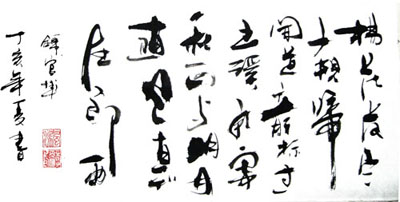 楊花落盡
子規啼
聞道龍標過
五溪我寄
愁心与明月
隨風直到
夜郎西
丁亥年夏書